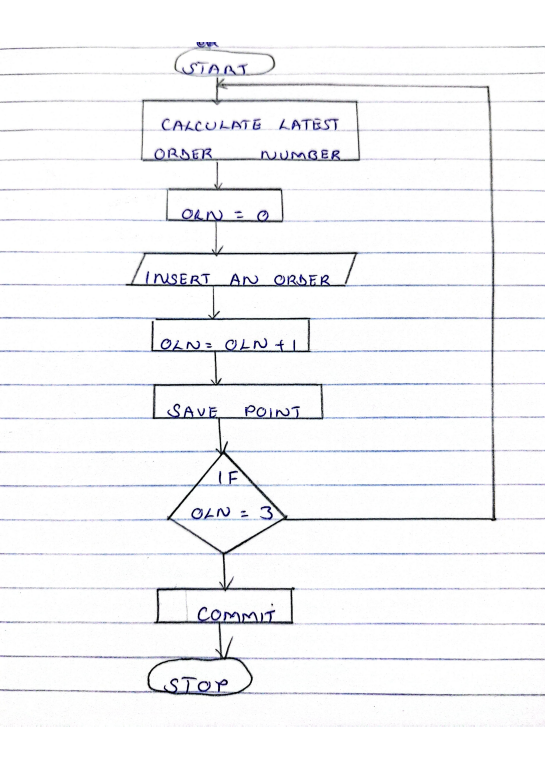 START
CALCULATE LATEST
ORDER NUMBER
OLN = 0
INSERT AN ORDER
OLN = OLN + 1
SAVE POINT
IF
OLN = 3
COMMIT
STOP